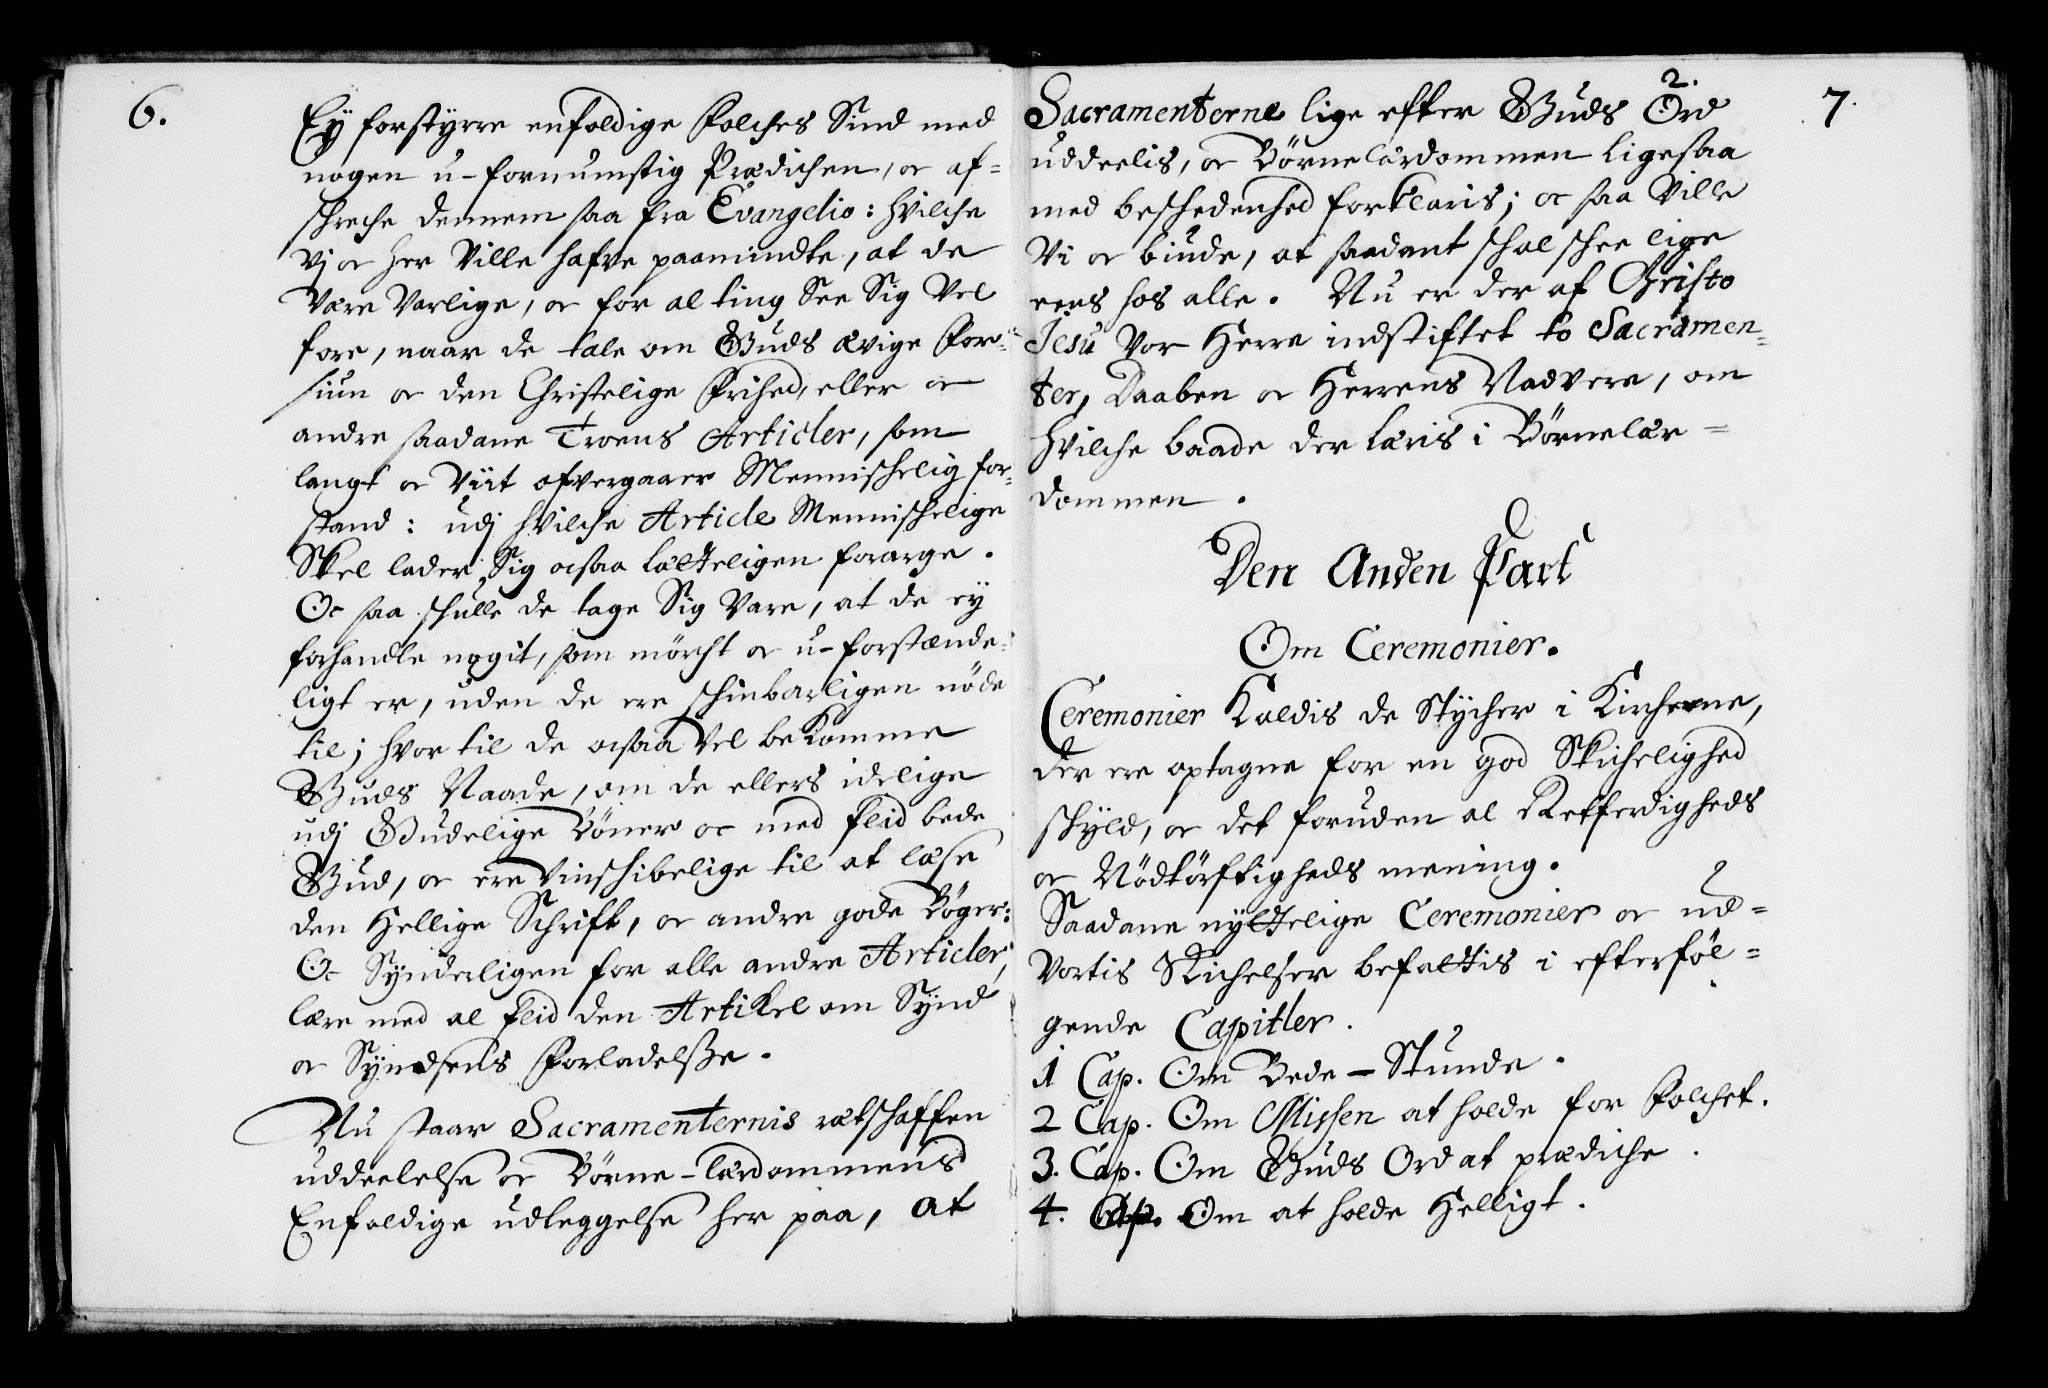 6.
Ey forstyrre enfoldige Folches Sind med
nogen u-fornumstig Prædichen, oc af=
schreche dennem saa fra Evangelio: hvilche
vj oc her Ville hafve paamindte, at de
Være Varlige, oc for al ting See Sig Vel
fore, naar de tale om Guds ævige For=
siun oc den Christelige Frihed, eller oc
andre saadane Troens Articler, som
langt oc Viit ofvergaaer Mennischelig for=
stand: udj hvilche Article Mennischelige
Skel lader Sig ocsaa lætteligen forarge.
Oc saa schulle de tage Sig Vare, at de ey
forhandle nogit, som mörcht oc u-forstænde=
ligt er, uden de ere schinbarligen nöde
til; hvor til de ocsaa Vel bekomme
Guds Naade, om de ellers idelige
udj Gudelige Böner oc med flid bede
Gud, oc ere Vinschibelige til at læse
den Hellige Schrift, oc andre gode Böger:
Oc Synderligen for alle andre Articler,
lære med al flid den Artikel om Synd
oc Syndsens Forladelsze.
Nu staar Sacramenternis rætschaffen
uddeelelse oc Börne-lærdommens
Enfoldige udleggelse her paa, at
7.
2.
Sacramenterne lige efter Guds Ord
uddeelis, oc Börnelærdommen ligesaa
med beschedenhed forklaris; oc saa Ville
Vi oc biude, at saadant schal schee lige
eens hos alle. Nu er der af Christo
Jesu Vor Herre indstiftet to Sacramen=
ter, Daaben oc Herrens Nadvere, om
hvilche baade der læris i Börnelær=
dommen.
Den Anden Part
Om Ceremonier.
Ceremonier Kaldis de Stycher i Kircherne,
der ere optagne for en god Skichelighed
schyld, oc det foruden al Retferdigheds
oc Nödtörftigheds mening.
Saadane nyttelige Ceremonier oc ud=
Vortis Skichelser befattis i efterföl=
gende Capitler.
1 Cap. Om Bede-Stunde.
2 Cap. Om Missen at holde for Folchet.
3. Cap. Om Guds Ord at prædiche.
4. Cap. Om at holde Helligt.